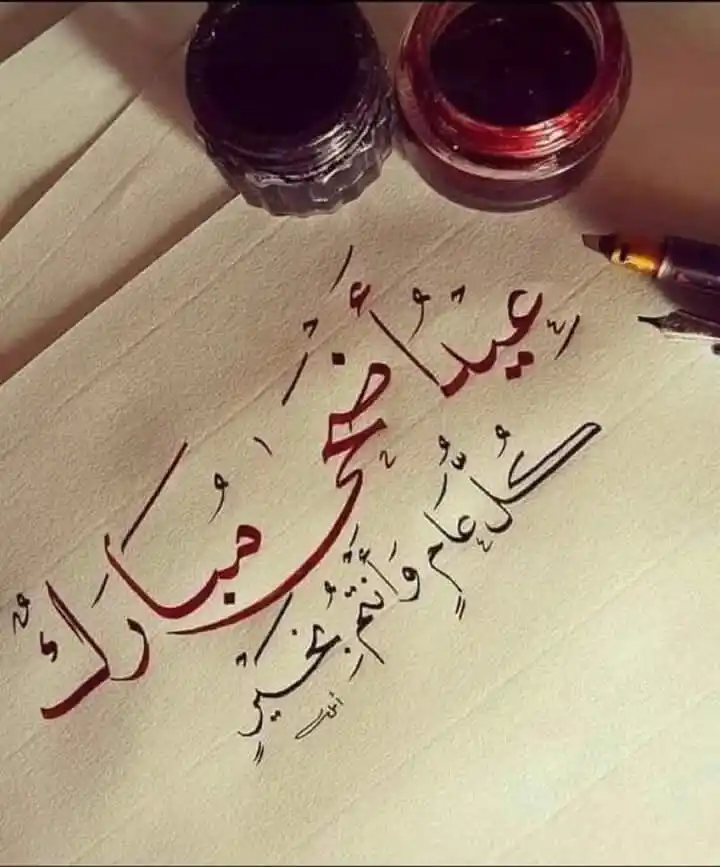 عِيدُ أَضْحَى مُبَارَكٌ
كُلُّ عَامٍ وَأَنْتُمْ بِخَيْرٍ